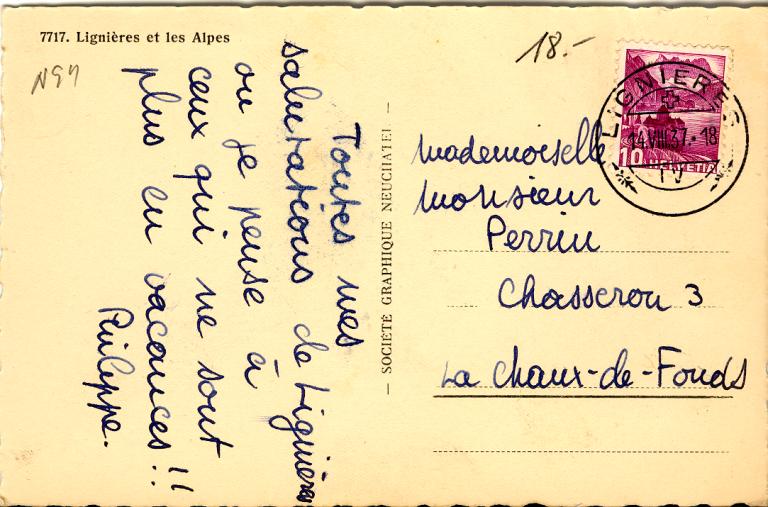 7717. Lignières et les Alpes
N94
18.-
Toutes mes
salutations de Lignières
ou je pense à
ceux qui ne sont
plus en vacances!!
Philippe.
— SOCIÉTÉ GRAPHIQUE NEUCHATEL —
LIGNIÈRES
14.VIII.37.-18
10 HELVETIA
Mademoiselle
Monsieur
Perrin
Chasseron 3
La Chaux-de-Fonds